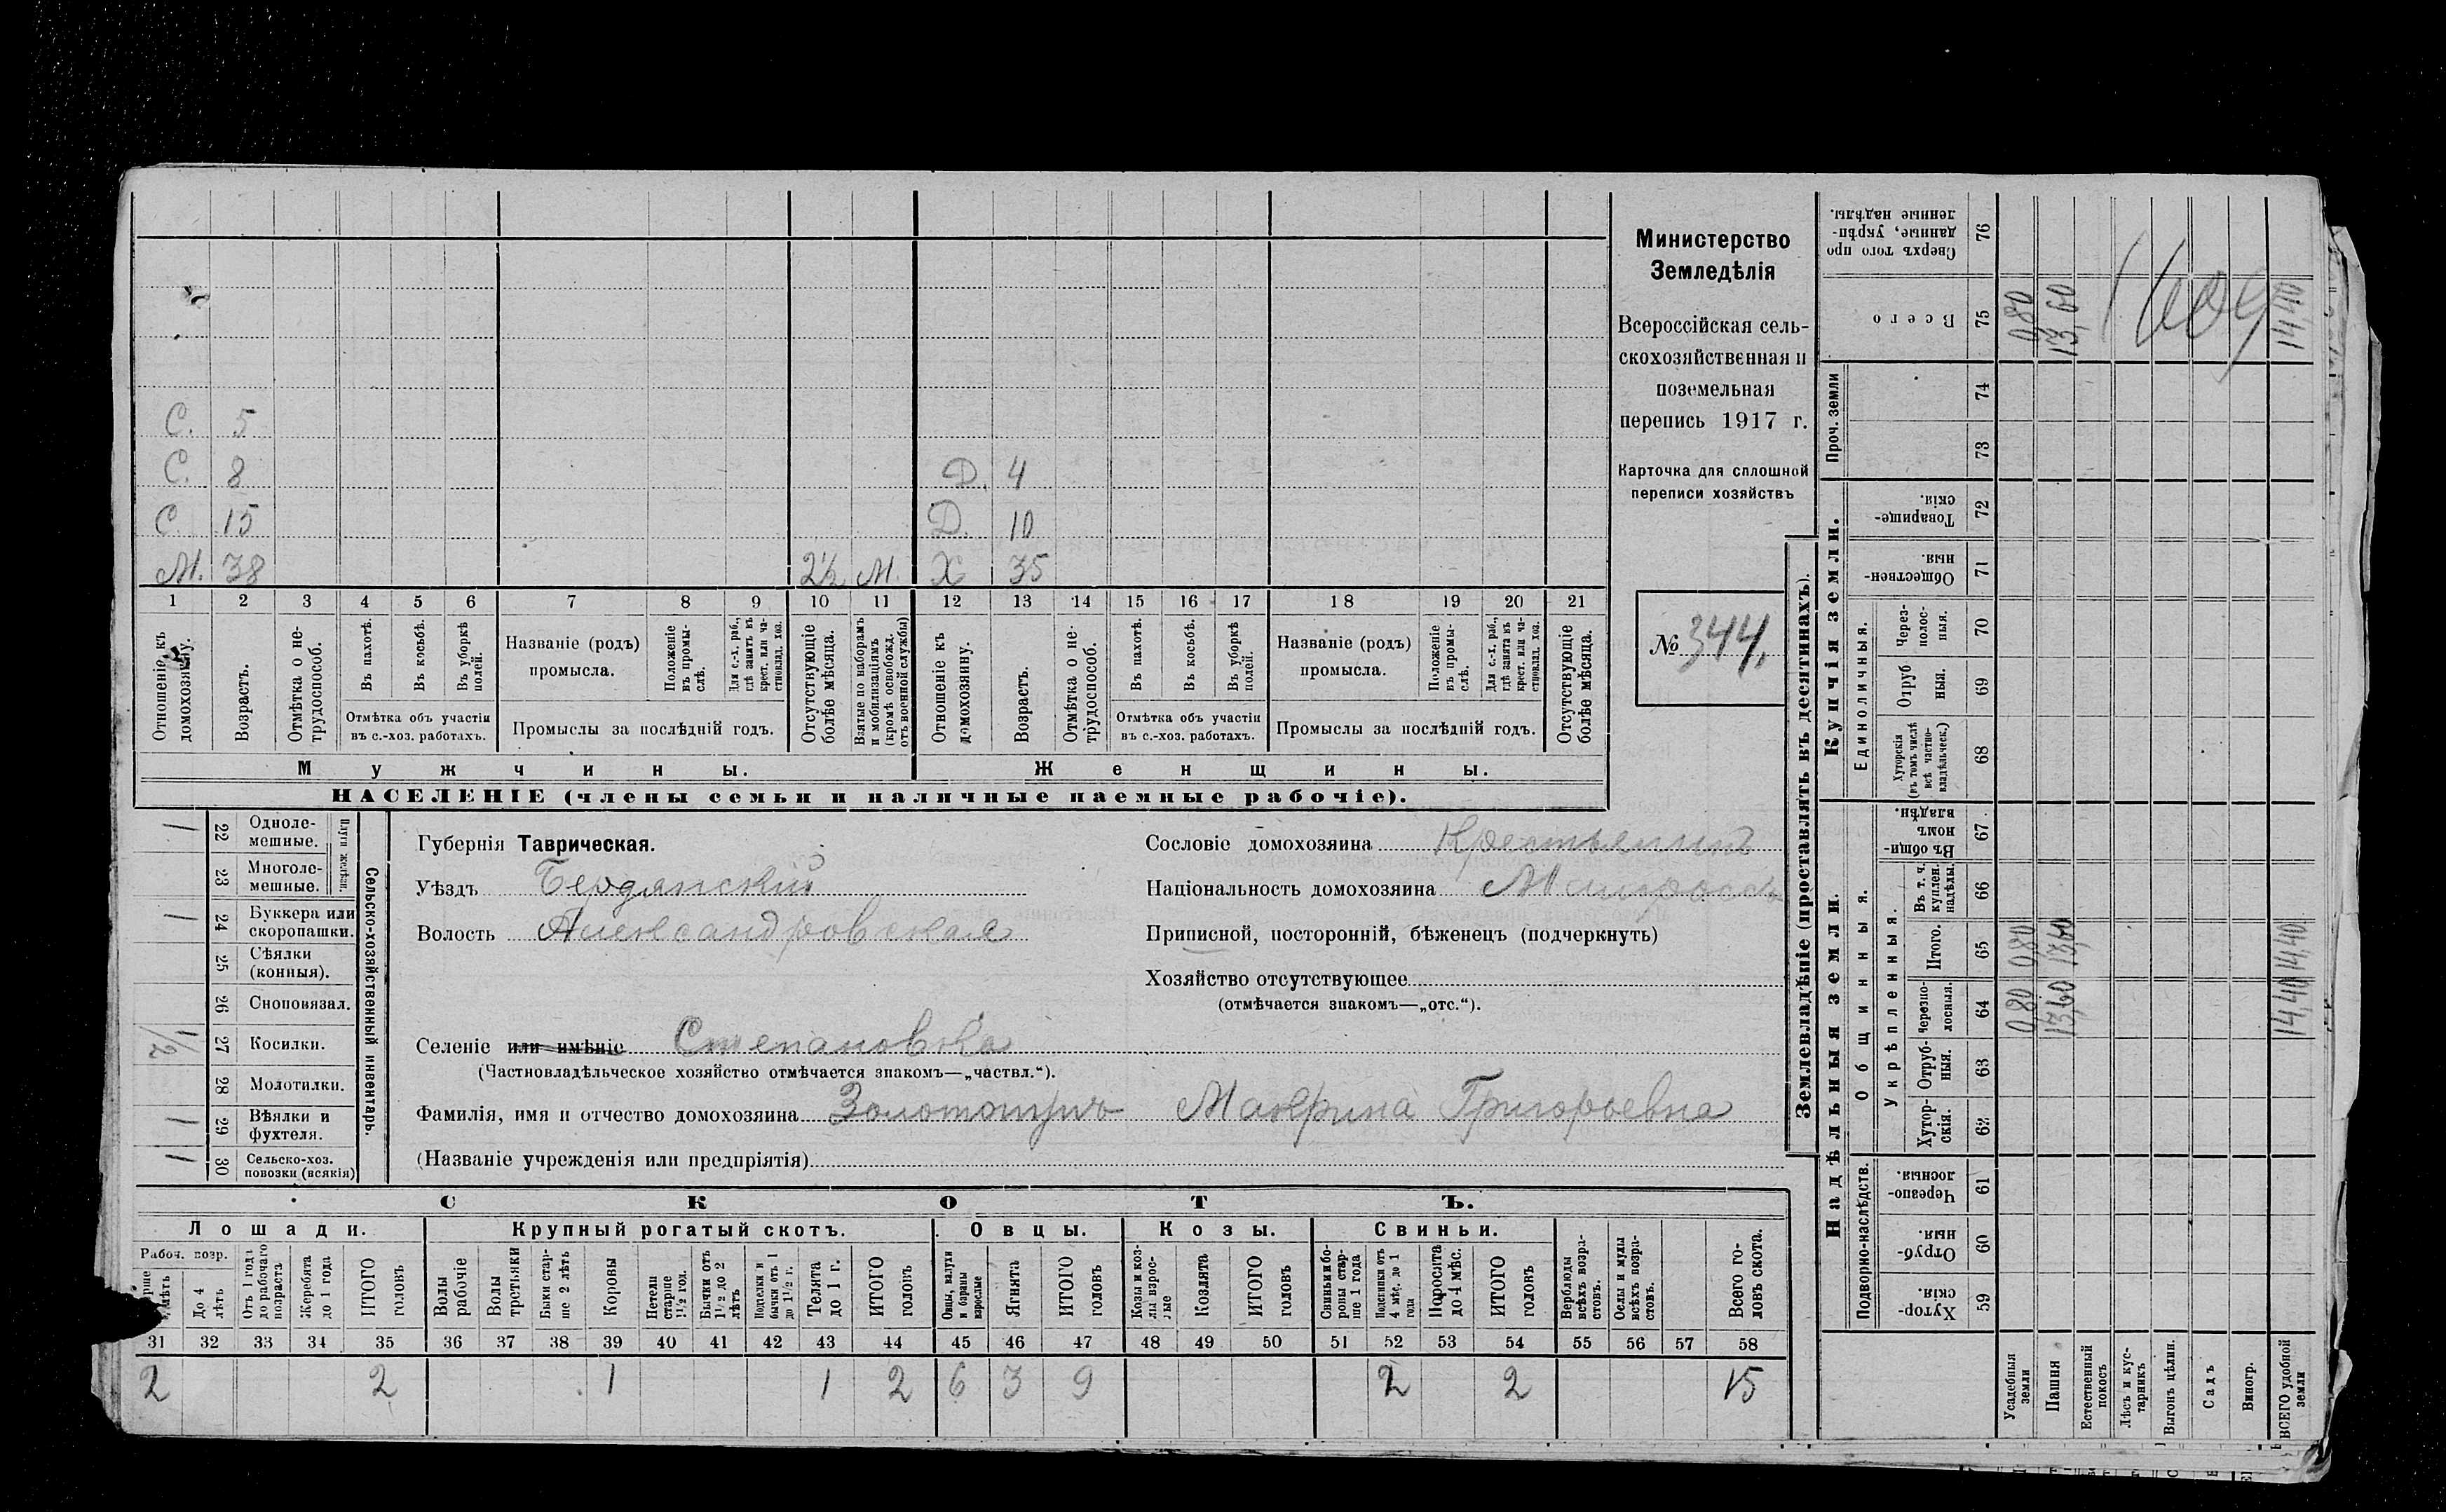 С. 5
С. 8 Д. 4
С. 15 Д. 10
М. 38 2½ М. Х 35
1 2 3 4 5 6 7 8 9 10 11 12 13 14 15 16 17 18 19 20 21
Отношеніе къ домохозяину.
Возрастъ.
Отмѣтка о не-трудоспособ.
Въ пахотѣ.
Въ косьбѣ.
Въ уборкѣ полей.
Отмѣтка объ участіи въ с.-хоз. работахъ.
Названіе (родъ) промысла.
Положеніе въ промы-слѣ.
Для с.-х. раб., гдѣ занятъ въ крест. или ча-стновлад. хоз.
Промыслы за послѣдній годъ.
Отсутствующіе болѣе мѣсяца.
Взятые по наборамъ и мобилизаціямъ (кромѣ освобожд. отъ военной службы)
Отношеніе къ домохозяину.
Возрастъ.
Отмѣтка о не-трудоспособ.
Въ пахотѣ.
Въ косьбѣ.
Въ уборкѣ полей.
Отмѣтка объ участіи въ с.-хоз. работахъ.
Названіе (родъ) промысла.
Положеніе въ промы-слѣ.
Для с.-х. раб., гдѣ занята въ крест. или ча-стновлад. хоз.
Промыслы за послѣдній годъ.
Отсутствующіе болѣе мѣсяца.
Мужчины. Женщины.
НАСЕЛЕНІЕ (члены семьи и наличные наемные рабочіе).
Министерство
Земледѣлія
Всероссійская сель-
скохозяйственная и
поземельная
перепись 1917 г.
Карточка для сплошной
переписи хозяйствъ
№ 344.
1 22 Одноле-мешные.
23 Многоле-мешные.
Плуги желѣзн.
1 24 Буккера или скоропашки.
25 Сѣялки (конныя).
26 Сноповязал.
1/2 27 Косилки.
28 Молотилки.
1 29 Вѣялки и фухтеля.
1 30 Сельско-хоз. повозки (всякія)
Сельско-хозяйственный инвентарь.
Губернія Таврическая.
Уѣздъ Бердянскій
Волость Александровская
Селеніе или имѣніе Степановка
(Частновладѣльческое хозяйство отмѣчается знакомъ—„частвл.“).
Фамилія, имя и отчество домохозяина Макрина Григорьевна
(Названіе учрежденія или предпріятія)
Сословіе домохозяина Крестьянинъ
Національность домохозяина
Приписной, посторонній, бѣженецъ (подчеркнуть)
Хозяйство отсутствующее
(отмѣчается знакомъ—„отс.“).
СКОТЪ.
Лошади. Крупный рогатый скотъ. Овцы. Козы. Свиньи.
Рабоч. возр.
До 4 лѣтъ
Отъ 1 года до рабочаго возраста
Жеребята до 1 года
ИТОГО головъ
Волы рабочіе
Волы третьяки
Быки стар-ше 2 лѣтъ
Коровы
Нетели старше 1½ год.
Бычки отъ 1½ до 2 лѣтъ
Подтелки и бычки отъ 1 до 1½ г.
Телята до 1 г.
ИТОГО головъ
Овцы, валухи и бараны взрослые
Ягнята
ИТОГО головъ
Козы и коз-лы взрос-лые
Козлята
ИТОГО головъ
Свиньи и бо-ровы стар-ше 1 года
Подсвинки отъ 4 мѣс. до 1 года
Поросята до 4 мѣс.
ИТОГО головъ
Верблюды всѣхъ возра-стовъ.
Ослы и мулы всѣхъ возра-стовъ.
Всего го-ловъ скота.
31 32 33 34 35 36 37 38 39 40 41 42 43 44 45 46 47 48 49 50 51 52 53 54 55 56 57 58
2 2 1 1 2 6 3 9 2 2 15
Землевладѣніе (проставлять въ десятинахъ).
Купчія земли.
Надѣльныя земли.
Сверхъ того про данные, укрѣп-ленные надѣлы. 76
Всего 75 0,80 13,60 1609 14,40
Проч. земли 74 73
Товарище-скія. 72
Обществен-ныя. 71
Единоличныя.
Через-полос-ныя. 70
Отруб ныя. 69
Хуторскія (въ томъ числѣ всѣ частно-владѣльческ.) 68
Общинныя.
Въ общи-номъ владѣн. 67
Укрѣпленныя.
Въ т. ч. куплен. надѣлы. 66
Итого. 65 0,80 13,60 14,40
Черезпо-лосныя. 64 0,80 13,60 14,40
Отруб-ныя. 63
Хутор-скія. 62
Подворно-наслѣдств.
Черезпо-лосныя. 61
Отруб-ныя. 60
Хутор-скія. 59
Усадебныя земли
Пашня
Естественный покосъ
Лѣсъ и кус-тарникъ
Выгонъ цѣлин.
Садъ
Виногр.
ВСЕГО удобной земли